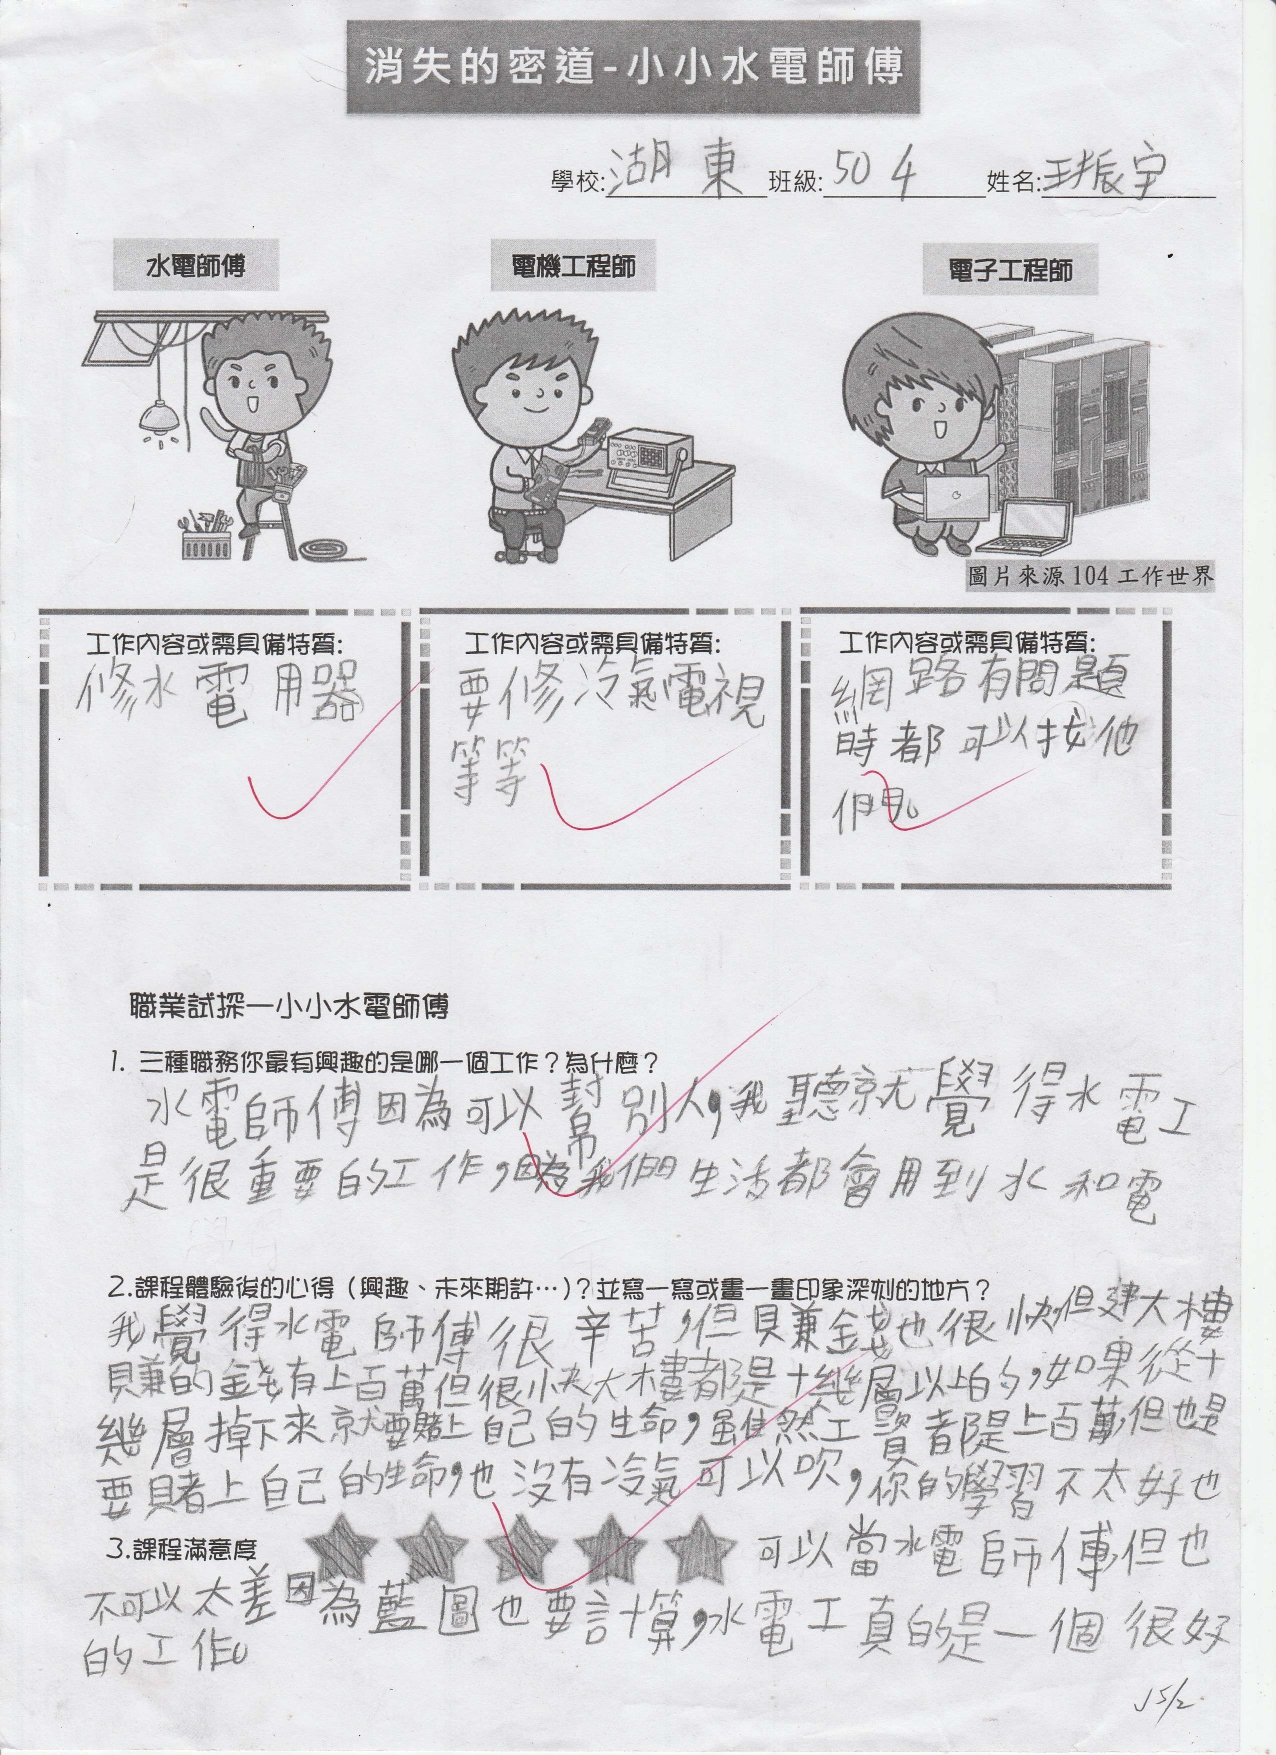 消失的密道-小小水電師傅
學校:湖東 班級:504 姓名:王振宇
水電師傅
電機工程師
電子工程師
圖片來源104工作世界
工作內容或需具備特質:
修水電用器
工作內容或需具備特質:
要修冷氣電視
等等
工作內容或需具備特質:
網路有問題
時都可以找他
們。
職業試探－小小水電師傅
1. 三種職務你最有興趣的是哪一個工作？為什麼？
水電師傅因為可以幫別人，我聽就覺得水電工
是很重要的工作，因為我們生活都會用到水和電
2.課程體驗後的心得（興趣、未來期許…）？並寫一寫或畫一畫印象深刻的地方？
我覺得水電師傅很辛苦，但賺錢也很快但建大樓
賺的錢有上百萬但很小夬大樓都是十幾層以上的，如果從十
幾層掉下來就要賭上自己的生命，雖然工資都是上百萬但也是
要賭上自己的生命，也沒有冷氣可以吹，你的學習不太好也
3.課程滿意度
可以當水電師傅但也
不可以太差因為藍圖也要計算，水電工真的是一個很好
的工作。
5/2